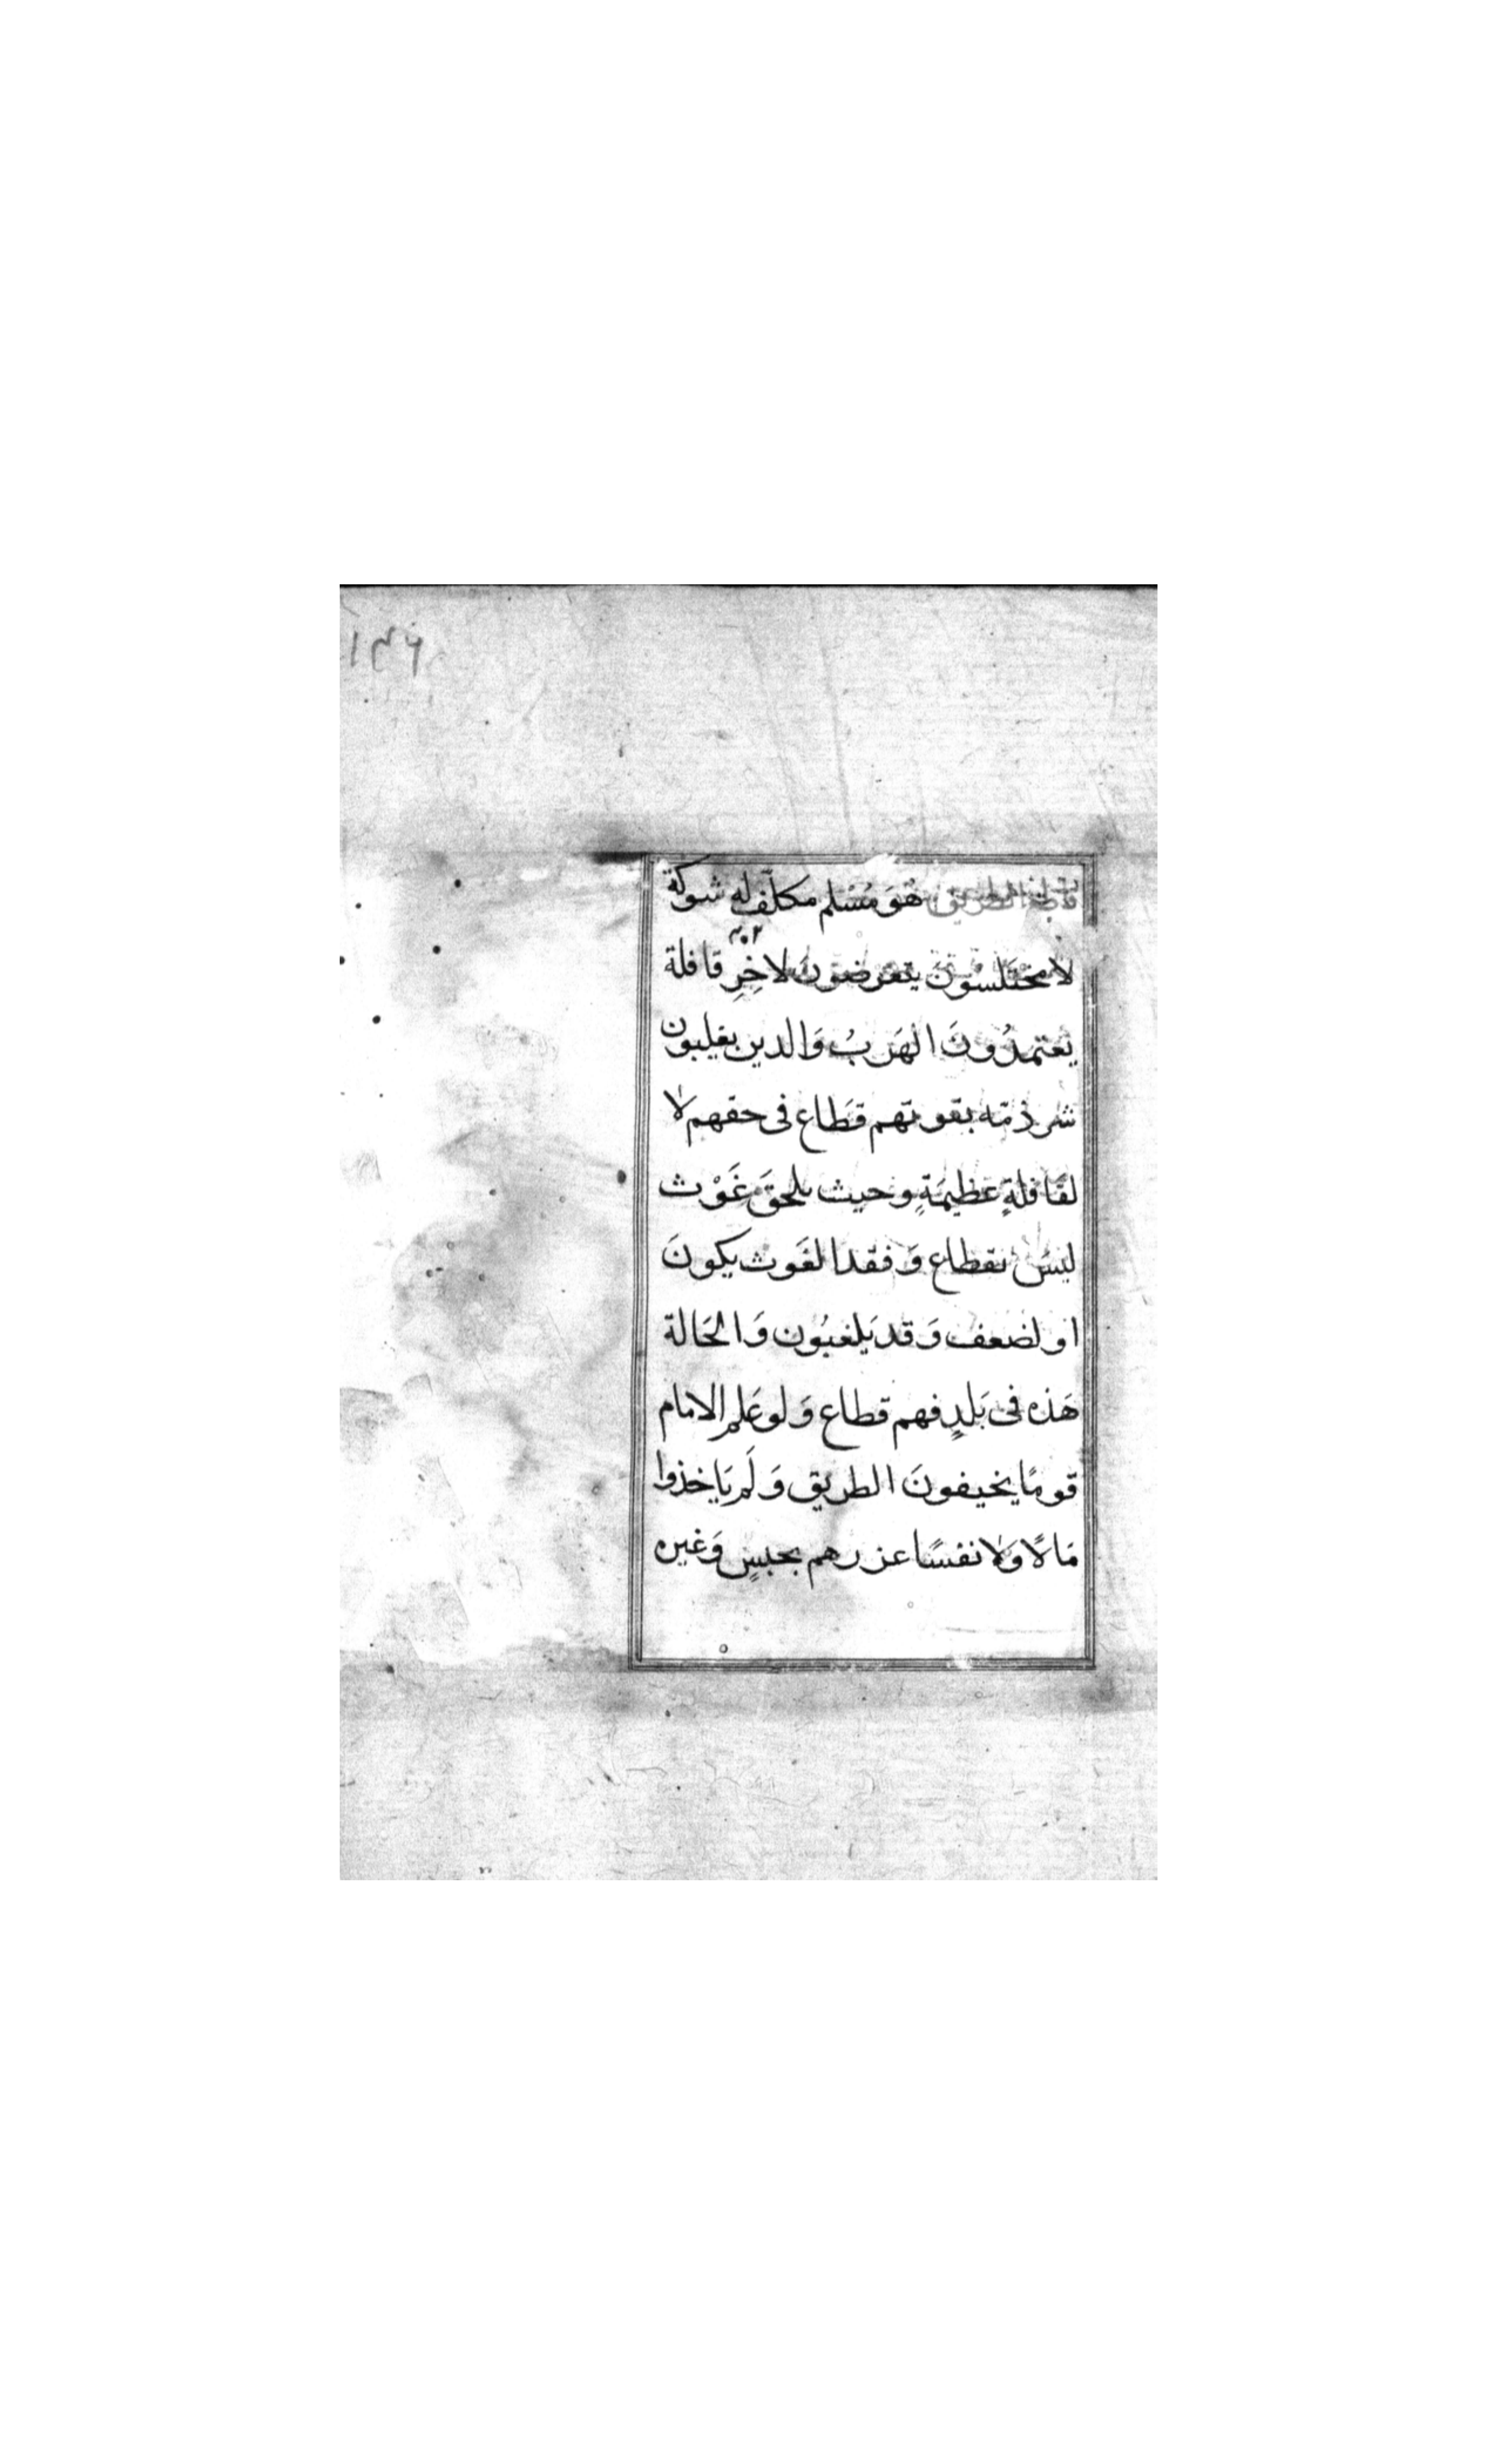 ١٤٦
قاطع الطريق هُوَ مُسْلم مكلّف له شوكة
لا مختَلسُونَ يتعَرضونَ لاخِرِ قافلة
يَعتمدُونَ الهَربُ وَالدين يغلبون
شرذمّه بقوتهم قطَاع فى حقهم لا
لقَافلةٍ عظيمَةٍ وحيث يلحَقَ غَوْث
ليسَ بقطاع وَفقد الغَوث يكونَ
او لضعف وَقد يَلغبُون وَالحَالة
هَذه فى بَلدٍ فهم قطاع وَلو عَلم الامام
قومًا يخيفونَ الطريق وَلَم يَاخذوا
مَالًا وَلا نفسًا عزرهم بحبسٍ وَغيره